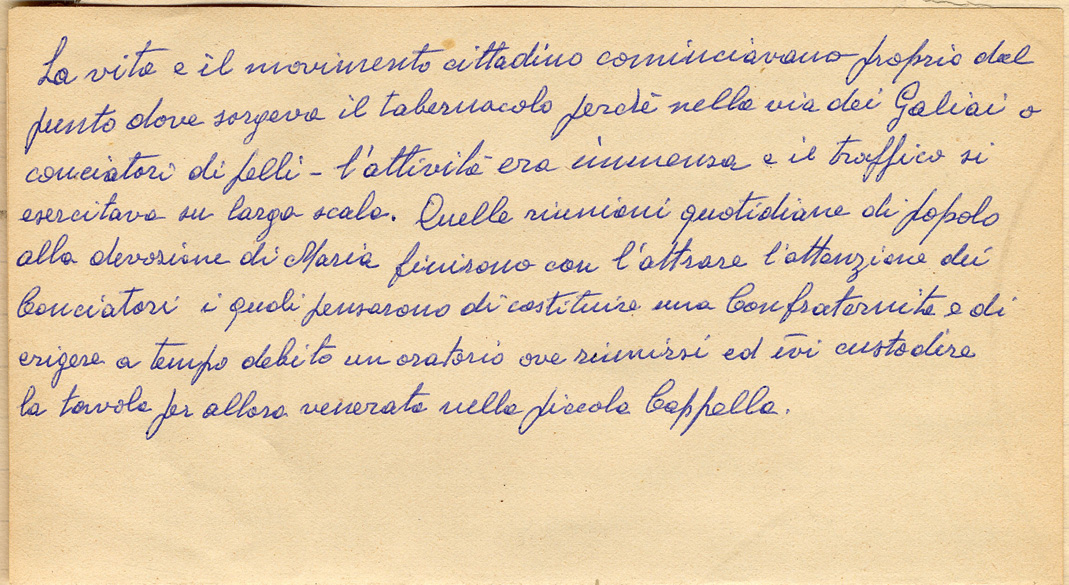 La vita e il movimento cittadino cominciavano proprio dal
punto dove sorgeva il tabernacolo perchè nella via dei Galiai o
conciatori di pelli - l'attività era immensa e il traffico si
esercitava su larga scala. Quelle riunioni quotidiane di popolo
alla devozione di Maria finirono con l'attrare l'attenzione dei
Conciatori i quali pensarono di costituire una Confraternita e di
erigere a tempo debito un oratorio ove riunirsi ed ivi custodire
la tavola per allora venerata nella piccola Cappella.